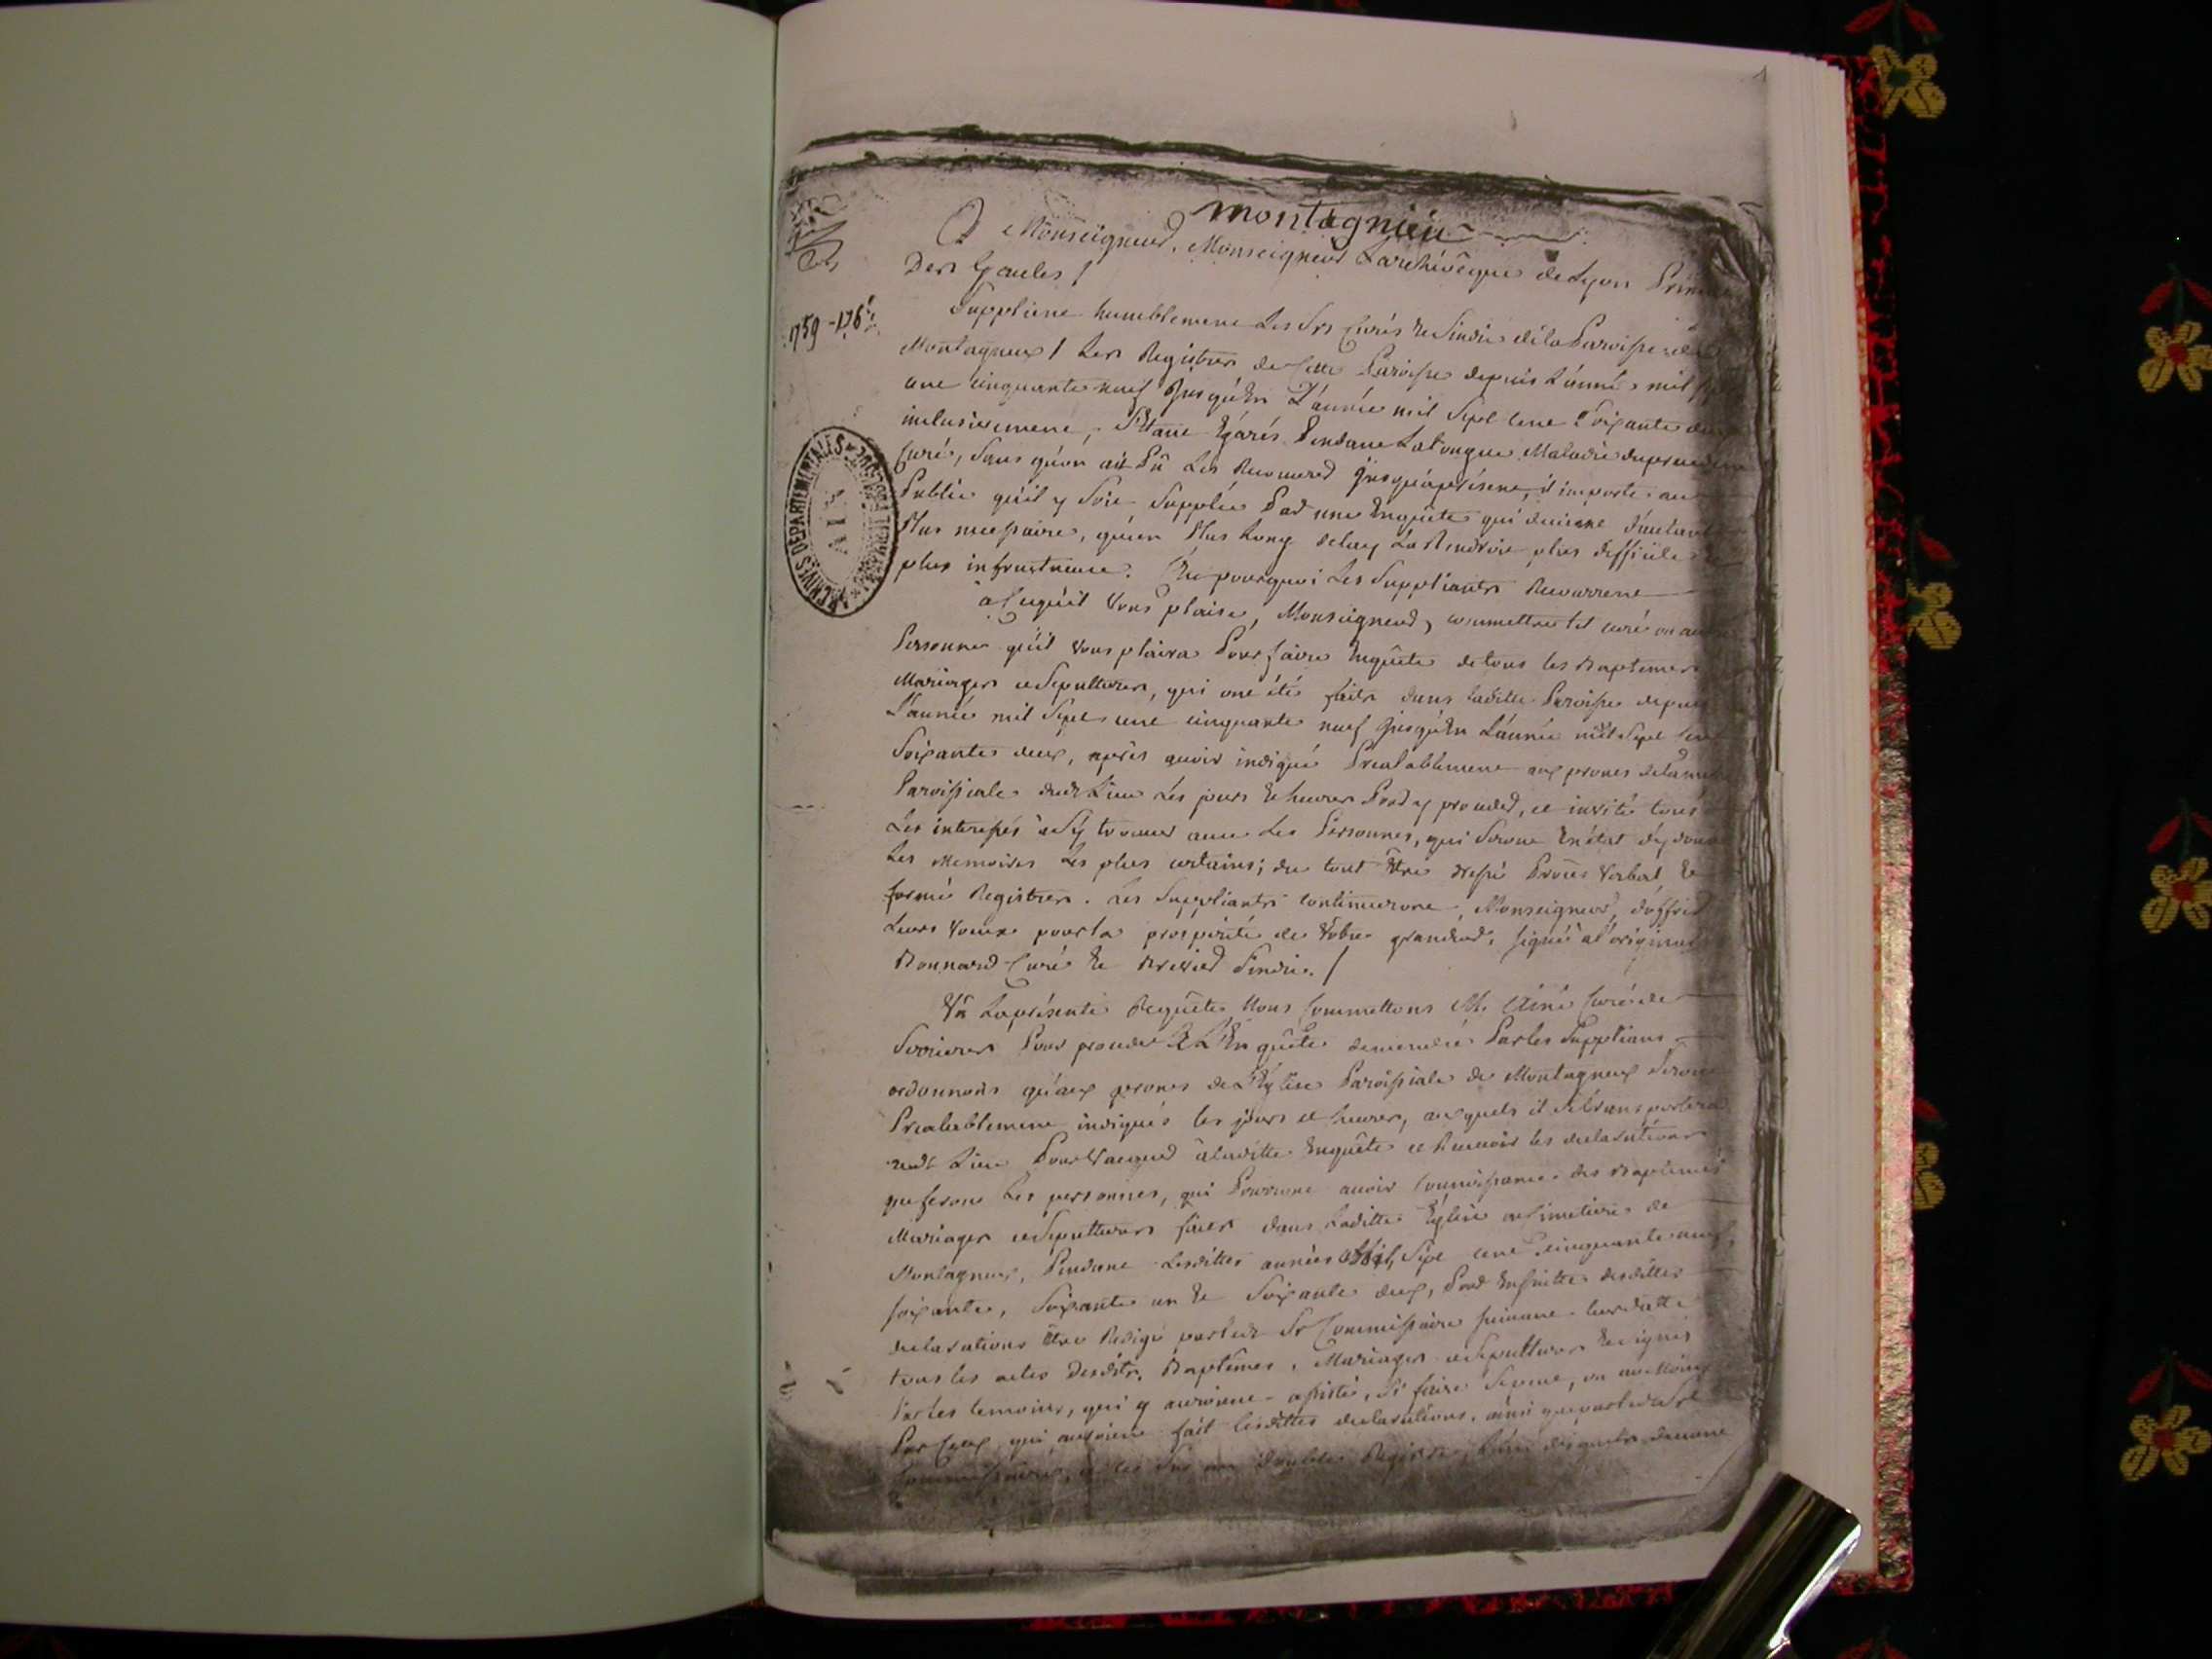 montagnieu
A Monseigneur, Monseigneur L'archévêque de Lyon Primat
Des Gaules /
1759 - 176
Supplient humblement Les Srs Curés et Sindic dé la Paroisse de
Montagneux / Les Registres de Cette Paroisse depuis L'année mil sept
cent cinquante neuf Jusqu'En L'année mil Sept Cent Soixante deux
inclusivement, S'Etant Egarés Pendant La longue Maladie du precedent
Curé, Sans qu'on ait Pû Les Recouvred Jusqu'aprésent, il importe au
Public qu'il y Soit Supplée Par une Enquête qui devient d'autant
Plus necessaire, qu'un Plus Long delay La Rendroit plus difficile et
plus infructueuse. C'Est pourquoi Les Suppliants Recourrent
à Ce qu'il Vous plaise, Monseigneur, commettre tel curé ou autre
Personne qu'il vous plaira Pour faire Enquête de tous les Baptemes
Mariages et Sepultures, qui ont été faits dans laditte Paroisse depuis
L'année mil Sept cent cinquante neuf Jusqu'En L'année mil Sept Cent
Soixante deux, après avoir indiqué Préalablement aux prones de la messe
Paroissiale dudt Lieu Les jours et heures Pour y proceder, et invité tous
Les interessés à S'y trouver avec Les Personnes, qui Seront En état d'y donner
Les Memoires Les plus certains; du tout Etre dressé Procès Verbal et
formé Registres. Les Suppliants Continueront, Monseigneur, d'offrir
Leurs Voeux pour la prosperité de Votre grandeur. Signé à l'original
Bonnard Curé et Sindic. /
Vû La présente Requête Nous Commettons Mr Curé de
Pour proceder à L'Enquête demandée Par les Supplians
ordonnons qu'aux prones de L'Eglise Paroissiale de Montagneux Seront
Prealablement indiqués les jours et heures, auxquels il Se transportera
audt Lieu Pour Vacquer à laditte Enquête et Recevoir les declarations
que feront Les personnes, qui Pourront avoir Connoissance des Baptemes
Mariages et Sepultures faits dans Laditte Eglise ou Cimetiere de
Montagneux, Pendant Lesdittes années Mil Sept Cent cinquante neuf,
soixante, Soixante un et Soixante deux, Pour Ensuitte desdittes
declarations être Redigé par ledt Sr Commissaire suivant leur datte
tous les actes Desdits Baptêmes, Mariages et Sepultures et signés
Par les temoins, qui y auroient assisté, Si faire Se peut, ou au Moins
Par Ceux qui auroient fait lesdittes declarations, ainsi que par ledit Sr
Commissaire, et les Sur un double Registre, L'un desquels demeure
ARCHIVES DEPARTEMENTALES
AIN